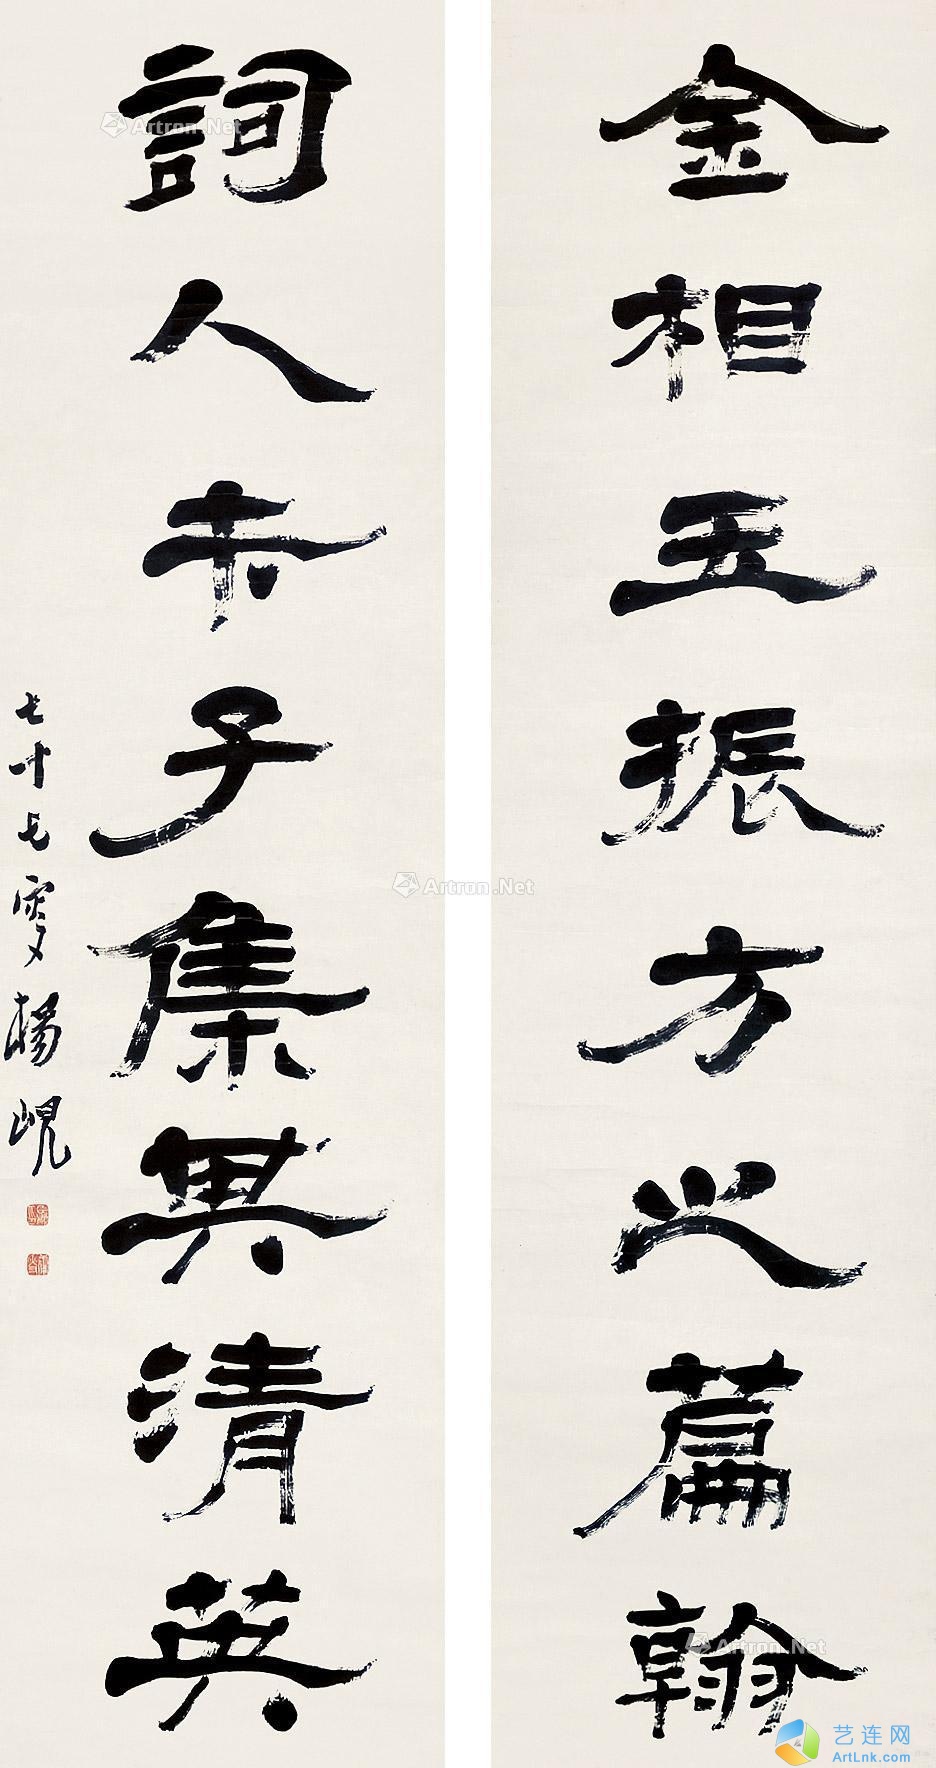 金相玉振方之篇翰
詞人才子集其清英
七十七叟楊峴
Artron.Net
Artron.Net
Artron.Net
艺连网
ArtLnk.com